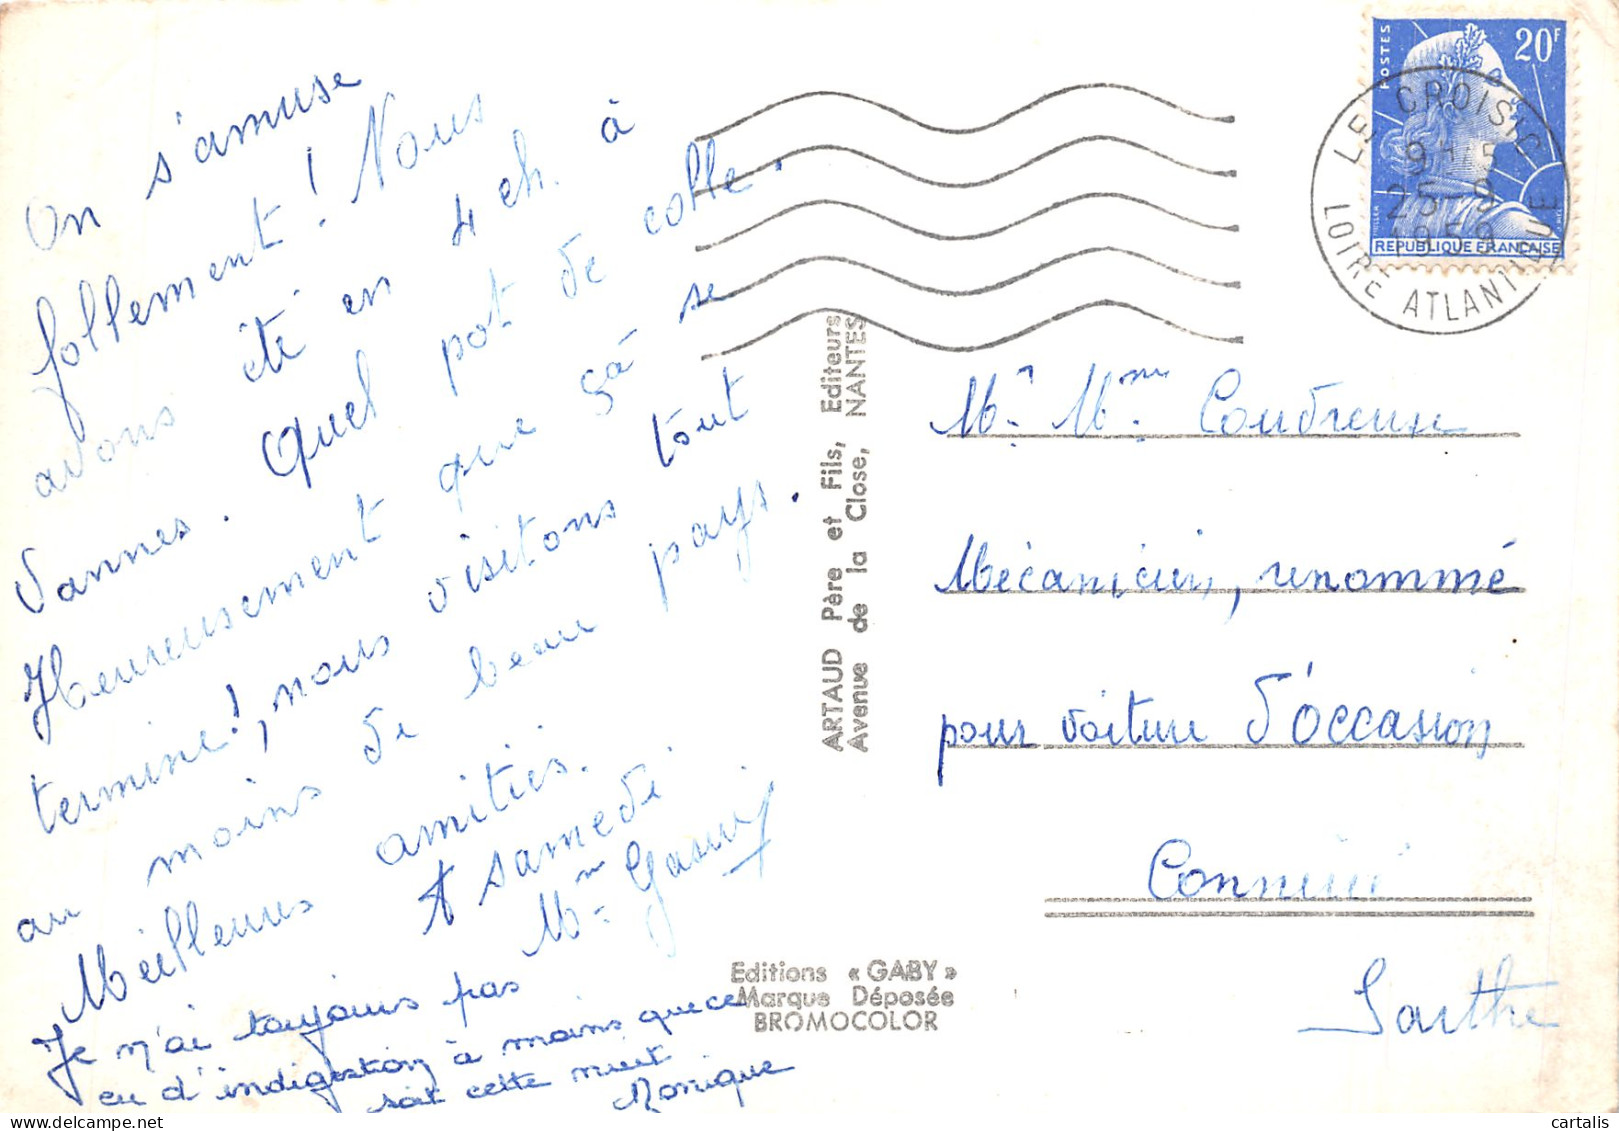 On s'amuse
follement ! Nous
avons été en 4 ch. à
Vannes. Quel pot de colle.
Heureusement que çà se
termine !, nous visitons tout
au moins de beau pays.
Meilleures amitiés.
A samedi
Mme
Je n'ai toujours pas
eu d'indigestion à moins que ce
soit cette nuit
Monique
POSTES
20F
REPUBLIQUE FRANCAISE
LE CROISIC
25-9
1959
LOIRE ATLANTIQUE
ARTAUD Père et Fils, Editeurs
Avenue de la Close, NANTES
Mr Mme Coudreuse
Mécanicien, renommé
pour voiture d'occasion
Connerré
Sarthe
Editions « GABY »
Marque Déposée
BROMOCOLOR
cartalis